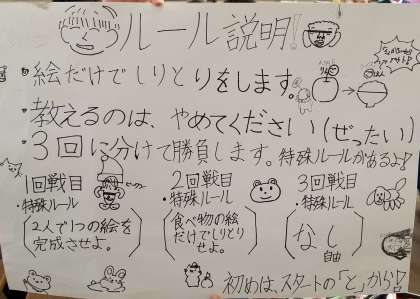 ルール説明!!
・絵だけでしりとりをします。
・教えるのは、やめてください(ぜったい)
・3回に分けて勝負します。特殊ルールがあるよ!
1回戦目
・特殊ルール
2人で1つの絵を
完成させよ。
2回戦目
・特殊ルール
食べ物の絵
だけでしりとり
せよ。
3回戦目
・特殊ルール
なし
自由
初めは、スタートの「と」から!?